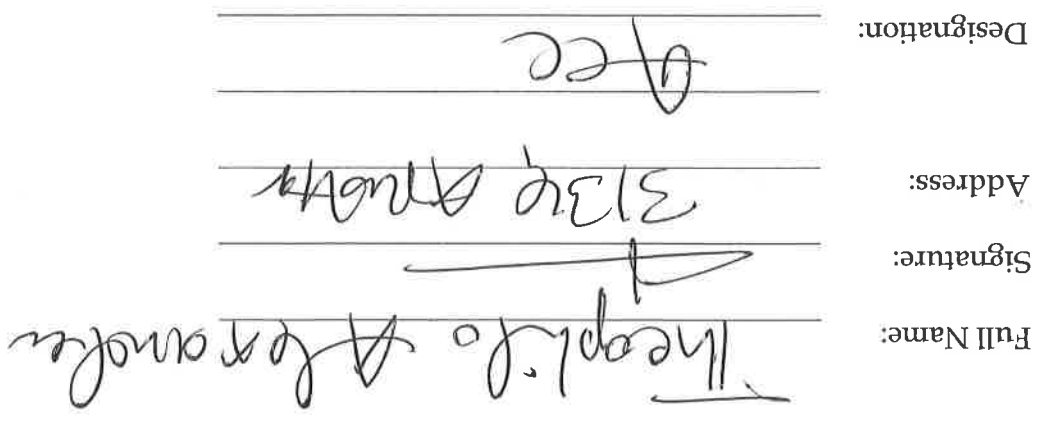 Full Name: Theophilo Alexander
Signature:
Address:
Designation: Acc